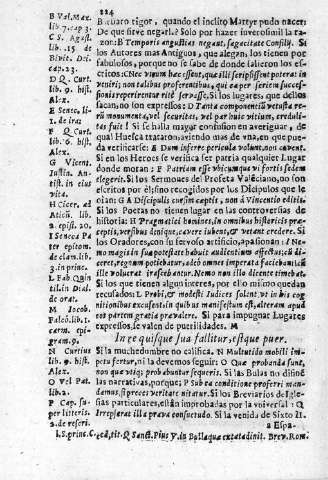 224
B Val. Max.
lib. 7. cap. 3.
C S. Agust.
lib. 15. de
Divit. Dei.
cap. 23.
D Q. Curt.
lib. 9. hist.
Alex.
E Senec. li.
de ira.
F Q. Curt.
lib. 6. hist.
Alex.
G Vincent.
Iustin. An-
tist. in eius
vita.
H Cicer. ad
Atticū. lib.
2. epist.
I Seneca Pa
ter epitom.
de clam. lib.
3. in princ.
L Fab Quin
til. in Dial.
de orat.
M Iocob.
Falcō. lib. 1.
carm. epi-
gram. 9.
N Curtius
lib. 9. hist.
Alex.
O Vel Pat.
lib. 2.
P Cap. su-
per litteris.
2. de rescri.
rigor, quando el inclito Martyr pudo nacer:
De que sirve negarla? Solo por hazer inverosimil la ra-
zon: B Temporis angustias negant, sagacitate Consilij. Si
los Autores mas Antiguos, que alegan, los tienen por
fabulosos, porque no se sabe de donde salieron los es-
critos: C Nec vivum hac esset, que illi scripsissent poterat in
veniri; non talibus proferentibus, qui ea per seriem succes-
sionis reperirentur rite servasse. Si los lugares, que dellos
sacan, no son expressos: D Tanta componentiū vetusta re-
rū monumenta, vel securitas, vel par huic vitium, creduli-
tas fuit Si se halla mayor confusion en averiguar, de
qual Huesca trataron, aviendo mas de vna, en que pue-
da verificarse: E Dum inferre periculum volunt, non cavent.
Si en los Heroes se verifica ser patria qualquier Lugar
donde moran: F Patriam esse vbicumque vi fortis sedem
elegerit. Si los Sermones del Profeta Valēciano, no son
escritos por él, sino recogidos por los Dicipulos que le
oian: G A Discipulis cursim captis, non á Vincentio editis.
Si los Poetas no tienen lugar en las controversias de
historia: H Pragmatici homines, in omnibus historiis præ-
ceptis, versibus dinique, cavere iubent, & vetant credere. Si
los Oradores, con su fervoso artificio, apasionan: I Ne-
mo magis in sua potestate habuit auditorum affectus; cū di-
ceret, regnum potiebatur, adeò omnes imperata faciebant: cū
ille voluerat irascebantur. Nemo non illo dicente timebat.
Si los que tienen algun interes, por ello mismo quedan
recusados: L Probi, & modesti Iudices solent vt in bis cog-
nitionibus excusent in quibus manifestum est, alteram apud
eos partem gratia prævalere. Si para impugnar Lugares
expressos, se valen de puerilidades. M
In re quisque sua fallitur, estque puer.
Si la muchedumbre no califica. N Multutido mobili im-
petu fertur, ni la devemos seguir: O Quæ probanda sunt,
non que vtiq; probabuntur sequeris. Si las Bulas no dinifen
las narrativas, porque: P Sub ea conditione proferri manda-
damus, si preces veritate nitatur. Si los Breviarios de Igle-
sias particulares, están improbados por la vniversal: Q
Irrepserat illa prava consuetudo. Si la venida de Sixto II.
a Espa-
I. S. prins. C. ed, tit. Q Sanct. Pius V. in Bulla quæ extat ad init. Brev. Rom.